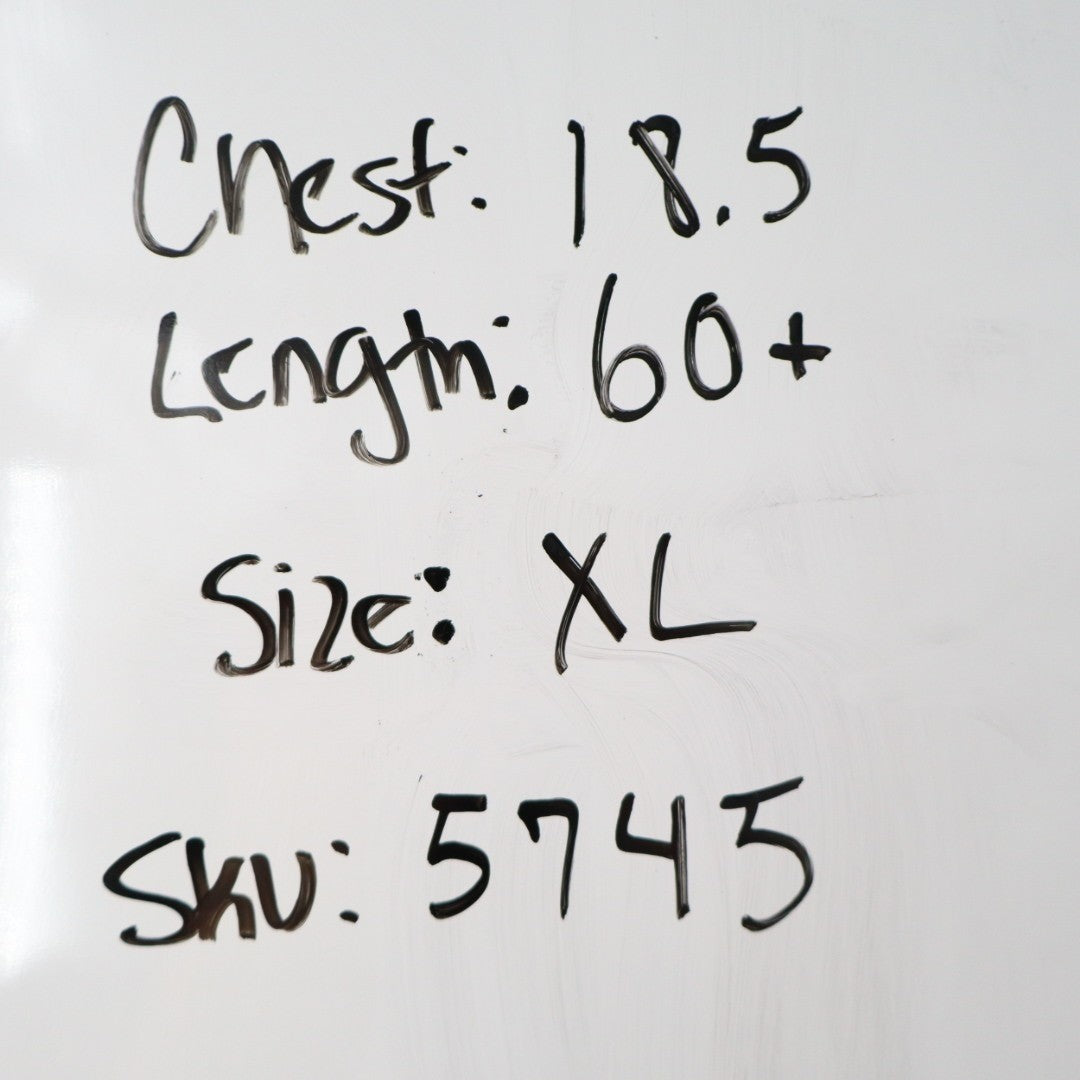 Chest: 18.5
Length: 60+
Size: XL
Sku: 5745